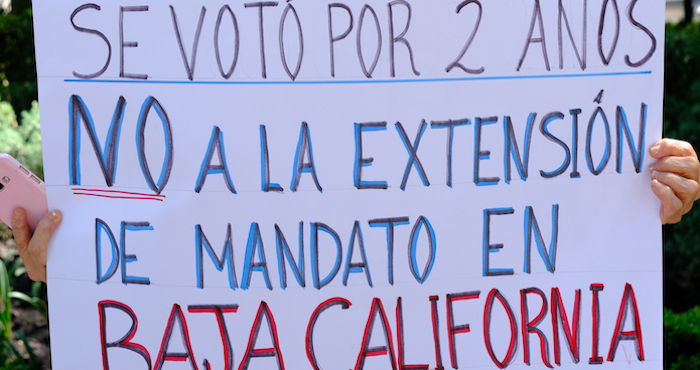 SE VOTÓ POR 2 AÑOS
NO A LA EXTENSIÓN
DE MANDATO EN
BAJA CALIFORNIA